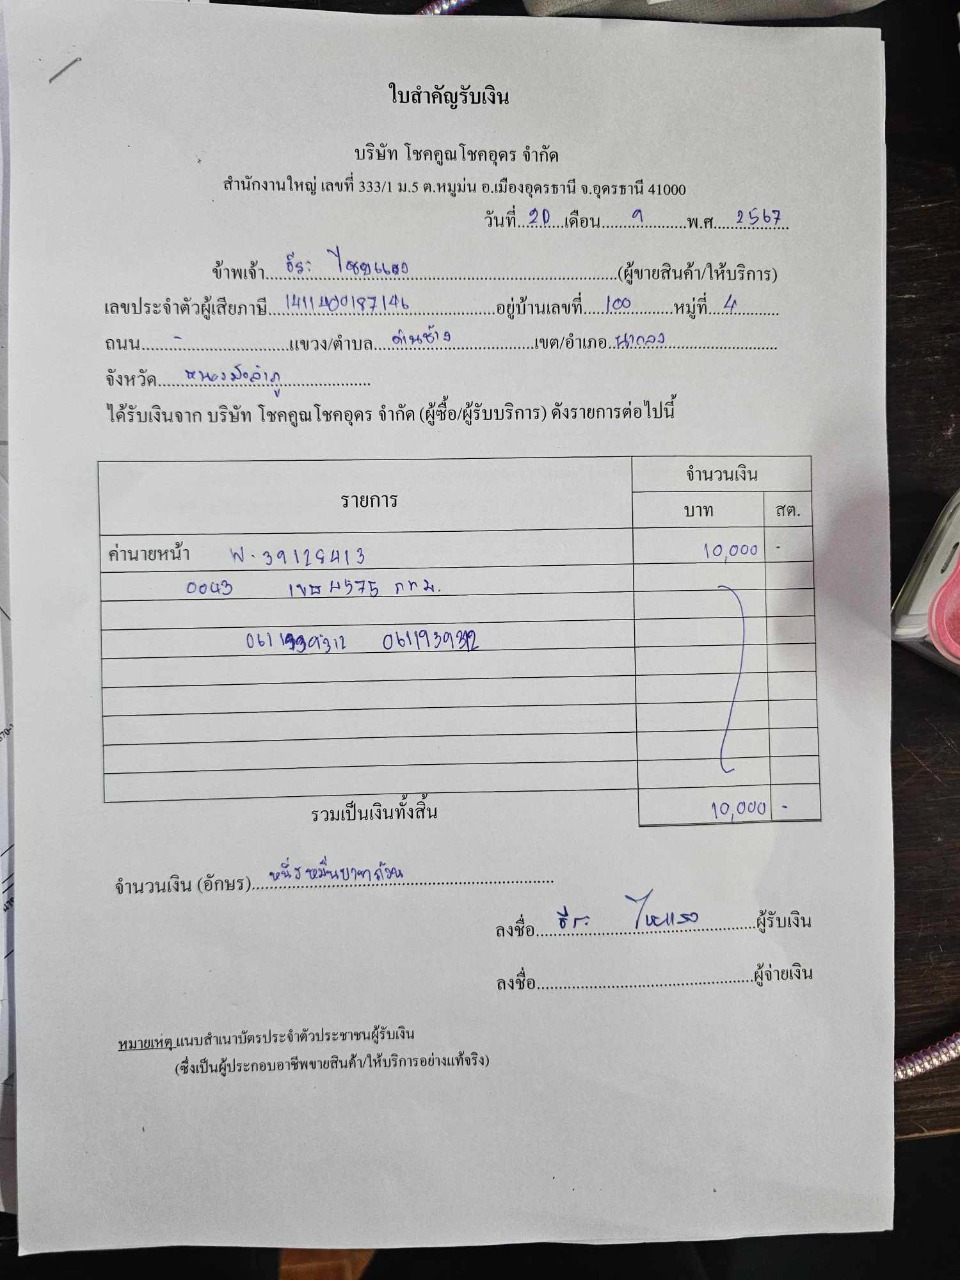 ใบสำคัญรับเงิน
บริษัท โชคคูณโชคอุดร จำกัด
สำนักงานใหญ่ เลขที่ 333/1 ม.5 ต.หมูม่น อ.เมืองอุดรธานี จ.อุดรธานี 41000
วันที่ 20 เดือน 9 พ.ศ 2567
ข้าพเจ้า ธีระ (ผู้ขายสินค้า/ให้บริการ)
เลขประจำตัวผู้เสียภาษี 1411400187146 อยู่บ้านเลขที่ 100 หมู่ที่ 4
ถนน - แขวง/ตำบล ด่านช้าง เขต/อำเภอ นากลาง
จังหวัด หนองบัวลำภู
ได้รับเงินจาก บริษัท โชคคูณโชคอุดร จำกัด (ผู้ซื้อ/ผู้รับบริการ) ดังรายการต่อไปนี้
รายการ จำนวนเงิน
บาท สต.
ค่านายหน้า 39128413 10,000 -
0043 4575 กทม.
0611939312
รวมเป็นเงินทั้งสิ้น 10,000 -
จำนวนเงิน (อักษร) หนึ่งหมื่นบาทถ้วน
ลงชื่อ ธีระ ผู้รับเงิน
ลงชื่อ ผู้จ่ายเงิน
หมายเหตุ แนบสำเนาบัตรประจำตัวประชาชนผู้รับเงิน
(ซึ่งเป็นผู้ประกอบอาชีพขายสินค้า/ให้บริการอย่างแท้จริง)